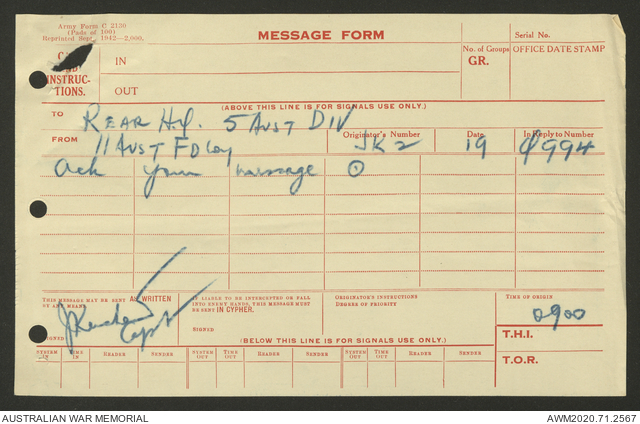 Army Form C 2130
(Pads of 100)
Reprinted Sept. 1942—2,000.
MESSAGE FORM
Serial No.
INSTRUC-
TIONS.
IN
OUT
No. of Groups
GR.
OFFICE DATE STAMP
(ABOVE THIS LINE IS FOR SIGNALS USE ONLY.)
TO REAR H.Q. 5 AUST DIV
FROM 11 AUST FD Coy
Originator's Number JK2
Date 19
In Reply to Number Q994
Ack your message
THIS MESSAGE MAY BE SENT AS WRITTEN
BY ANY MEANS.
SIGNED
Capt
IF LIABLE TO BE INTERCEPTED OR FALL
INTO ENEMY HANDS, THIS MESSAGE MUST
BE SENT IN CYPHER.
SIGNED
ORIGINATOR'S INSTRUCTIONS
DEGREE OF PRIORITY
TIME OF ORIGIN
0900
T.H.I.
T.O.R.
(BELOW THIS LINE IS FOR SIGNALS USE ONLY.)
SYSTEM IN TIME IN READER SENDER SYSTEM OUT TIME OUT READER SENDER SYSTEM OUT TIME OUT READER SENDER
AUSTRALIAN WAR MEMORIAL
AWM2020.71.2567